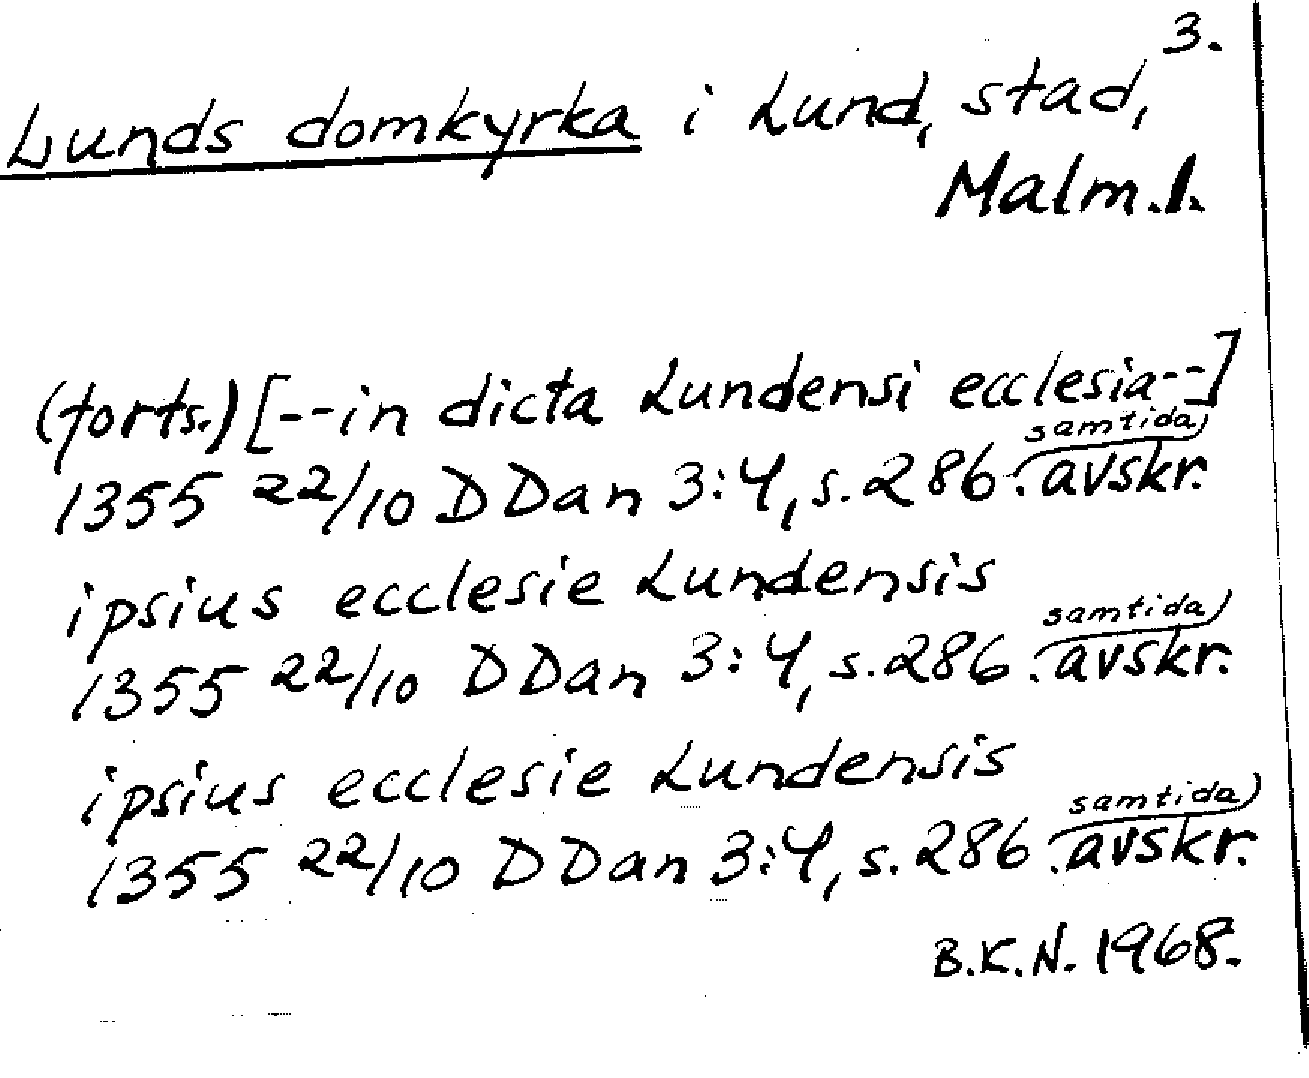 3.
Lunds domkyrka i Lund, stad,
Malm.l.
(forts.) [--in dicta Lundensi ecclesia--]
1355 22/10 DDan 3:4, s. 286. samtida avskr.
ipsius ecclesie Lundensis
1355 22/10 DDan 3:4, s. 286. samtida avskr.
ipsius ecclesie Lundensis
1355 22/10 DDan 3:4, s. 286. samtida avskr.
B.K.N. 1968.